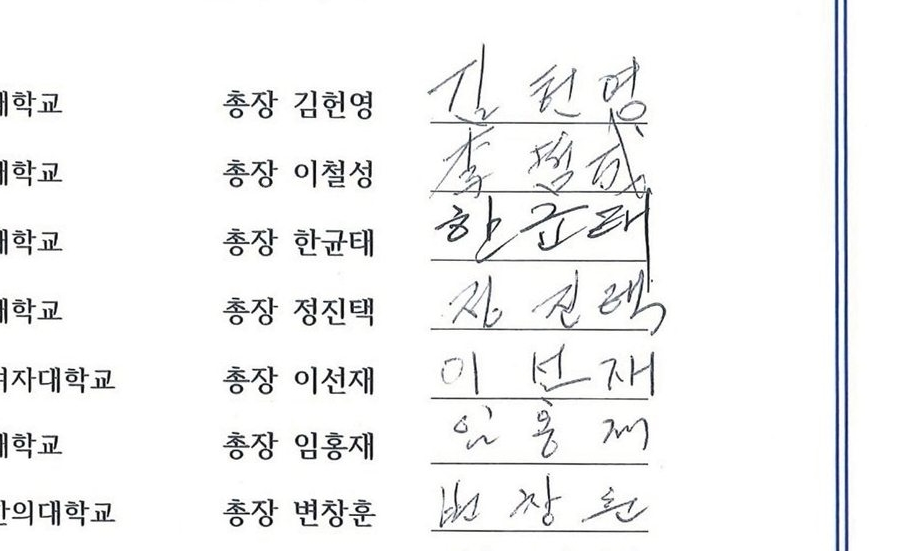 대학교 총장 김헌영 김헌영
대학교 총장 이철성 李哲成
대학교 총장 한균태 한균태
대학교 총장 정진택 정진택
여자대학교 총장 이선재 이선재
대학교 총장 임홍재 임홍재
한의대학교 총장 변창훈 변창훈